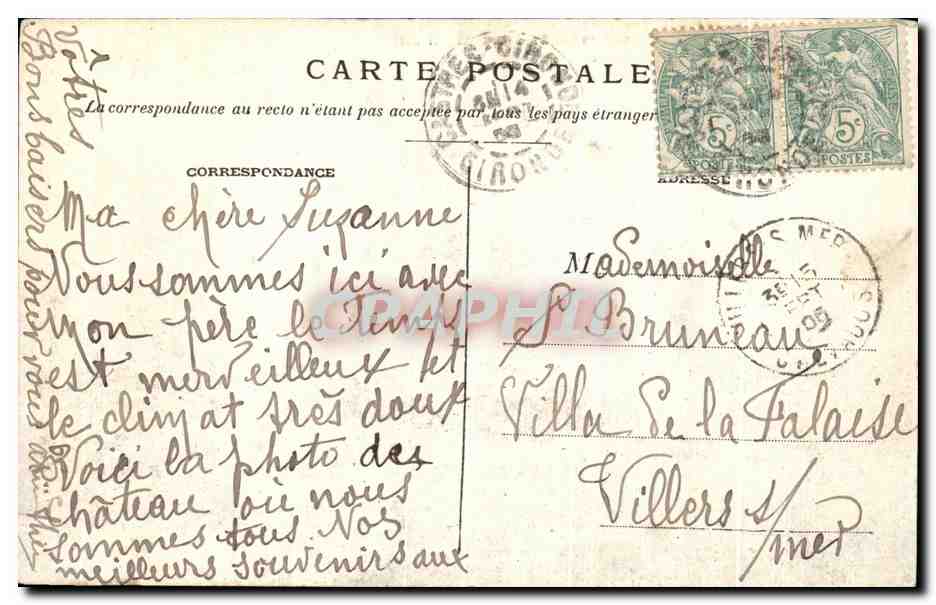 CARTE POSTALE
La correspondance au recto n'étant pas acceptée par tous les pays étranger
CORRESPONDANCE
ADRESSE
5c
POSTES
5c
POSTES
GIRONDE
CALVADOS
Ma chère Suzanne
Nous sommes ici avec
mon père le Temps
est merveilleux et
le climat très doux
Voici la photo des
château où nous
sommes tous Nos
meilleurs souvenirs aux
Vôtres
Bons baisers pour vous
Mademoiselle
S Bruneau
Villa de la Falaise
Villers s/
mer
CPAPHIL